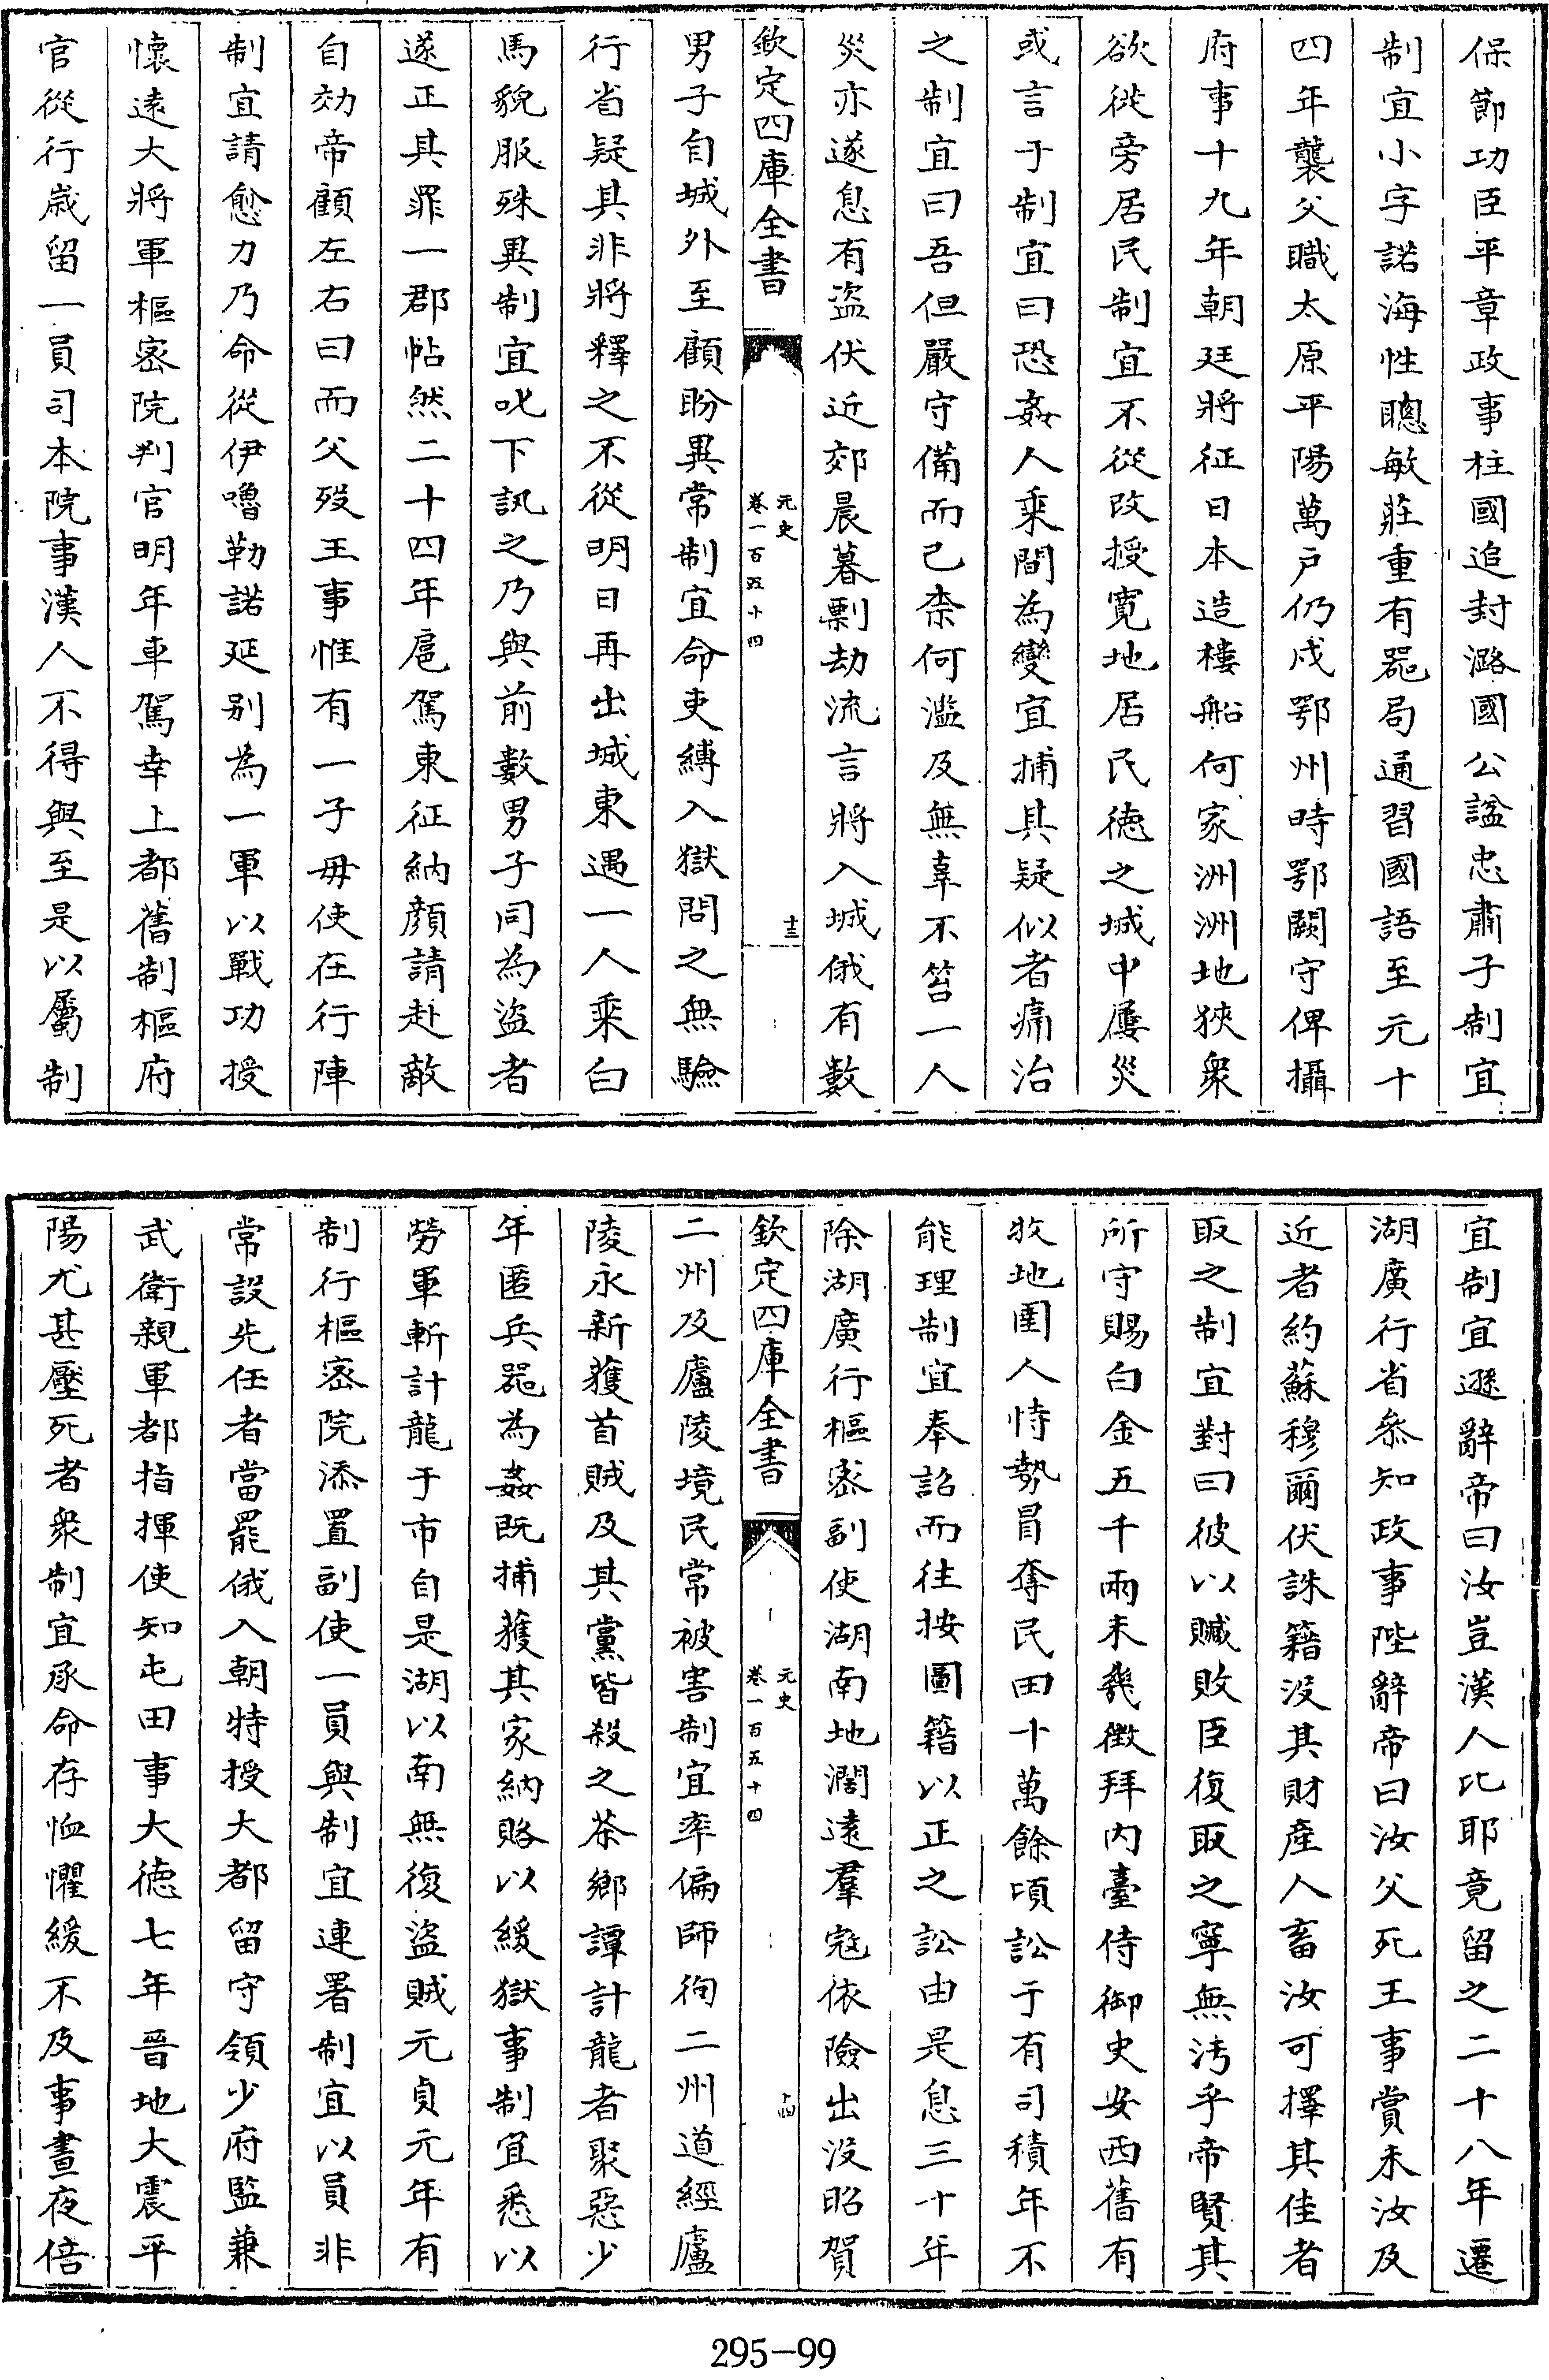 保節功臣平章政事柱國追封潞國公諡忠肅子制宜
制宜小字諾海性聰敏莊重有器局通習國語至元十
四年襲父職太原平陽萬戶仍戍鄂州時鄂闕守俾攝
府事十九年朝廷將征日本造樓船何家洲洲地狹衆
欲徙旁居民制宜不從改授寬地居民德之城中屢災
或言于制宜曰恐姦人乘間為變宜捕其疑似者痛治
之制宜曰吾但嚴守備而已柰何濫及無辜不笞一人
災亦遂息有盜伏近郊晨暮剽劫流言將入城俄有數
欽定四庫全書
元史
卷一百五十四
十三
男子自城外至顧盼異常制宜命吏縛入獄問之無驗
行省疑其非將釋之不從明日再出城東遇一人乘白
馬貌服殊異制宜叱下訊之乃與前數男子同為盜者
遂正其罪一郡帖然二十四年扈駕東征納顏請赴敵
自効帝顧左右曰而父歿王事惟有一子毋使在行陣
制宜請愈力乃命從伊嚕勒諾延别為一軍以戰功授
懷遠大將軍樞密院判官明年車駕幸上都舊制樞府
官從行歲留一員司本院事漢人不得與至是以屬制
宜制宜遜辭帝曰汝豈漢人比耶竟留之二十八年遷
湖廣行省叅知政事陛辭帝曰汝父死王事賞未汝及
近者約蘇穆爾伏誅籍沒其財產人畜汝可擇其佳者
取之制宜對曰彼以贓敗臣復取之寧無汚乎帝賢其
所守賜白金五千兩未幾徵拜內臺侍御史安西舊有
牧地圉人恃勢冒奪民田十萬餘頃訟于有司積年不
能理制宜奉詔而往按圖籍以正之訟由是息三十年
除湖廣行樞密副使湖南地濶遠羣寇依險出沒昭賀
欽定四庫全書
元史
卷一百五十四
十四
二州及廬陵境民常被害制宜率偏師徇二州道經廬
陵永新獲首賊及其黨皆殺之茶鄉譚計龍者聚惡少
年匿兵器為姦既捕獲其家納賂以緩獄事制宜悉以
勞軍斬計龍于市自是湖以南無復盜賊元貞元年有
制行樞密院添置副使一員與制宜連署制宜以員非
常設先任者當罷俄入朝特授大都留守領少府監兼
武衛親軍都指揮使知屯田事大德七年晉地大震平
陽尤甚壓死者衆制宜承命存恤懼緩不及事晝夜倍
295-99